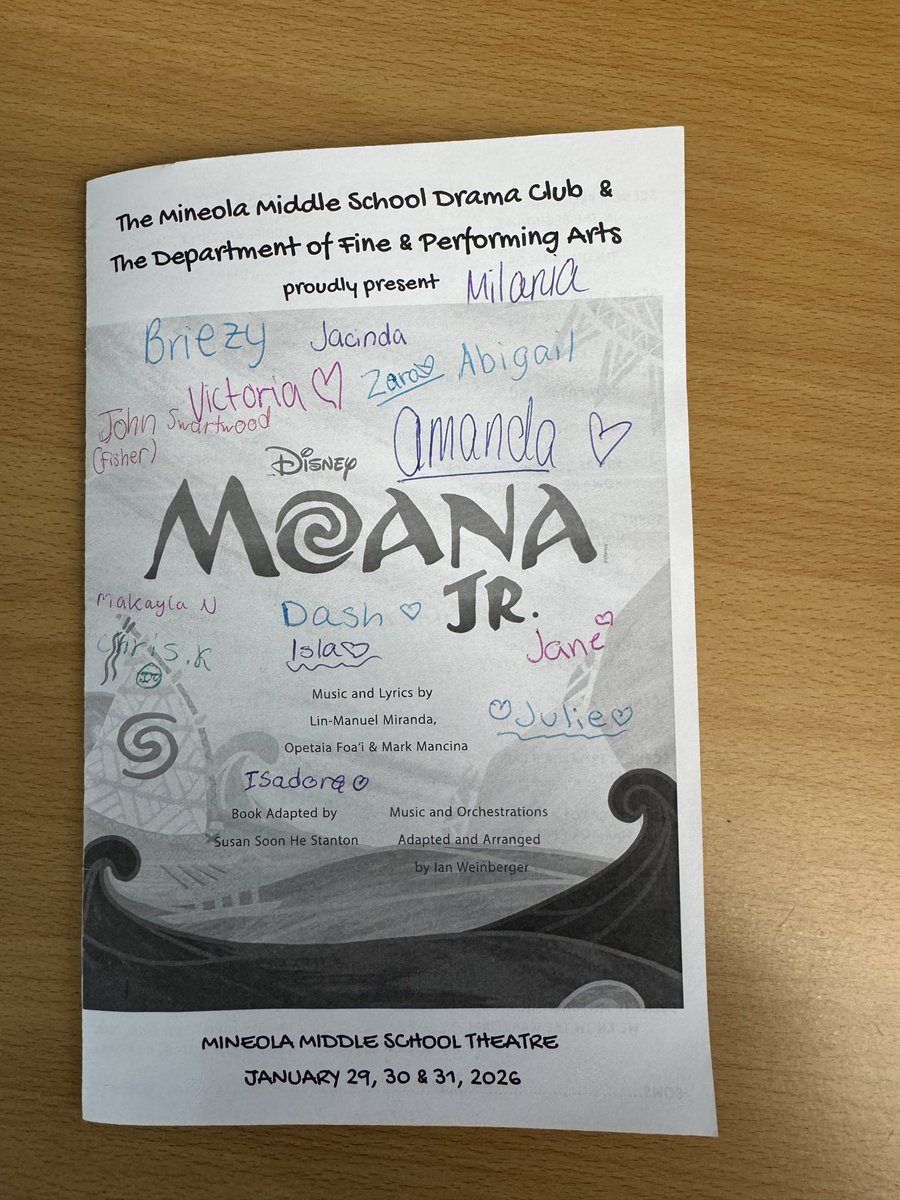 The Mineola Middle School Drama Club &
The Department of Fine & Performing Arts
proudly present
Milania
Briezy
Jacinda
Zara
Abigail
Victoria
John Swartwood
(Fisher)
Amanda
DISNEY
MOANA
JR.
Makayla N
Dash
Jane
Chris.K
Isla
Music and Lyrics by
Lin-Manuel Miranda,
Opetaia Foa'i & Mark Mancina
Julie
Isadora
Book Adapted by
Susan Soon He Stanton
Music and Orchestrations
Adapted and Arranged
by Ian Weinberger
MINEOLA MIDDLE SCHOOL THEATRE
JANUARY 29, 30 & 31, 2026